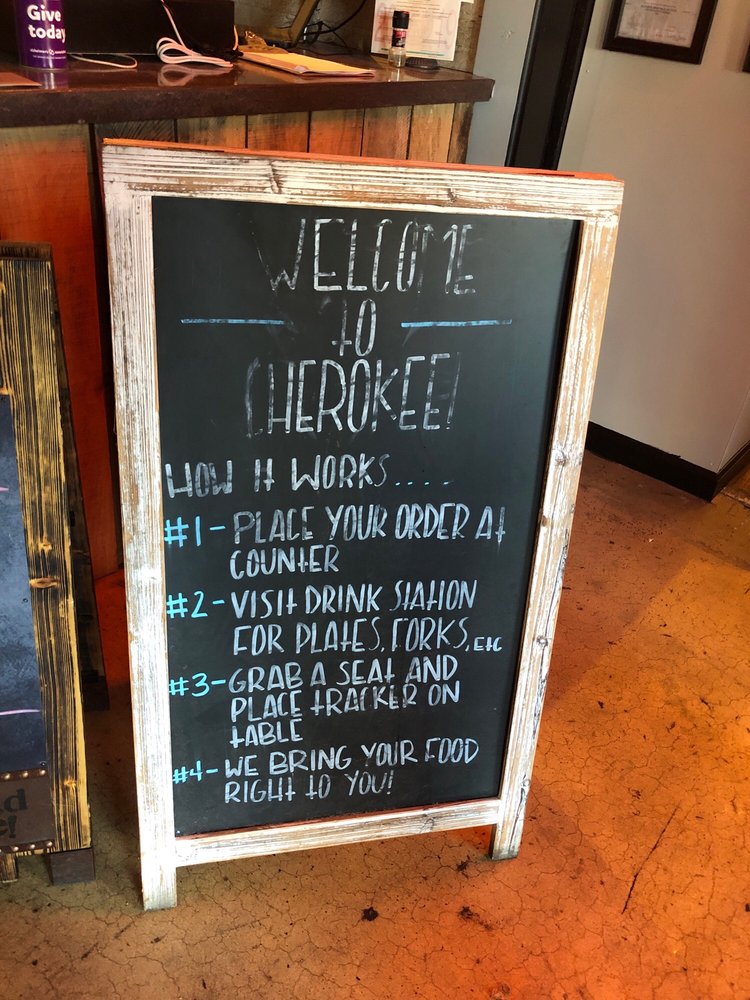 Give
today
WELCOME
to
CHEROKEE!
HOW It WORKS.....
#1- PLACE YOUR ORDER At
COUNtER
#2- VISIt DRINK StAtION
FOR PLAtES, FORKS, Etc
#3- GRAB A SEAt AND
PLACE tRACKER ON
tABLE
#4- WE BRING YOUR FOOD
RIGHt tO YOU!